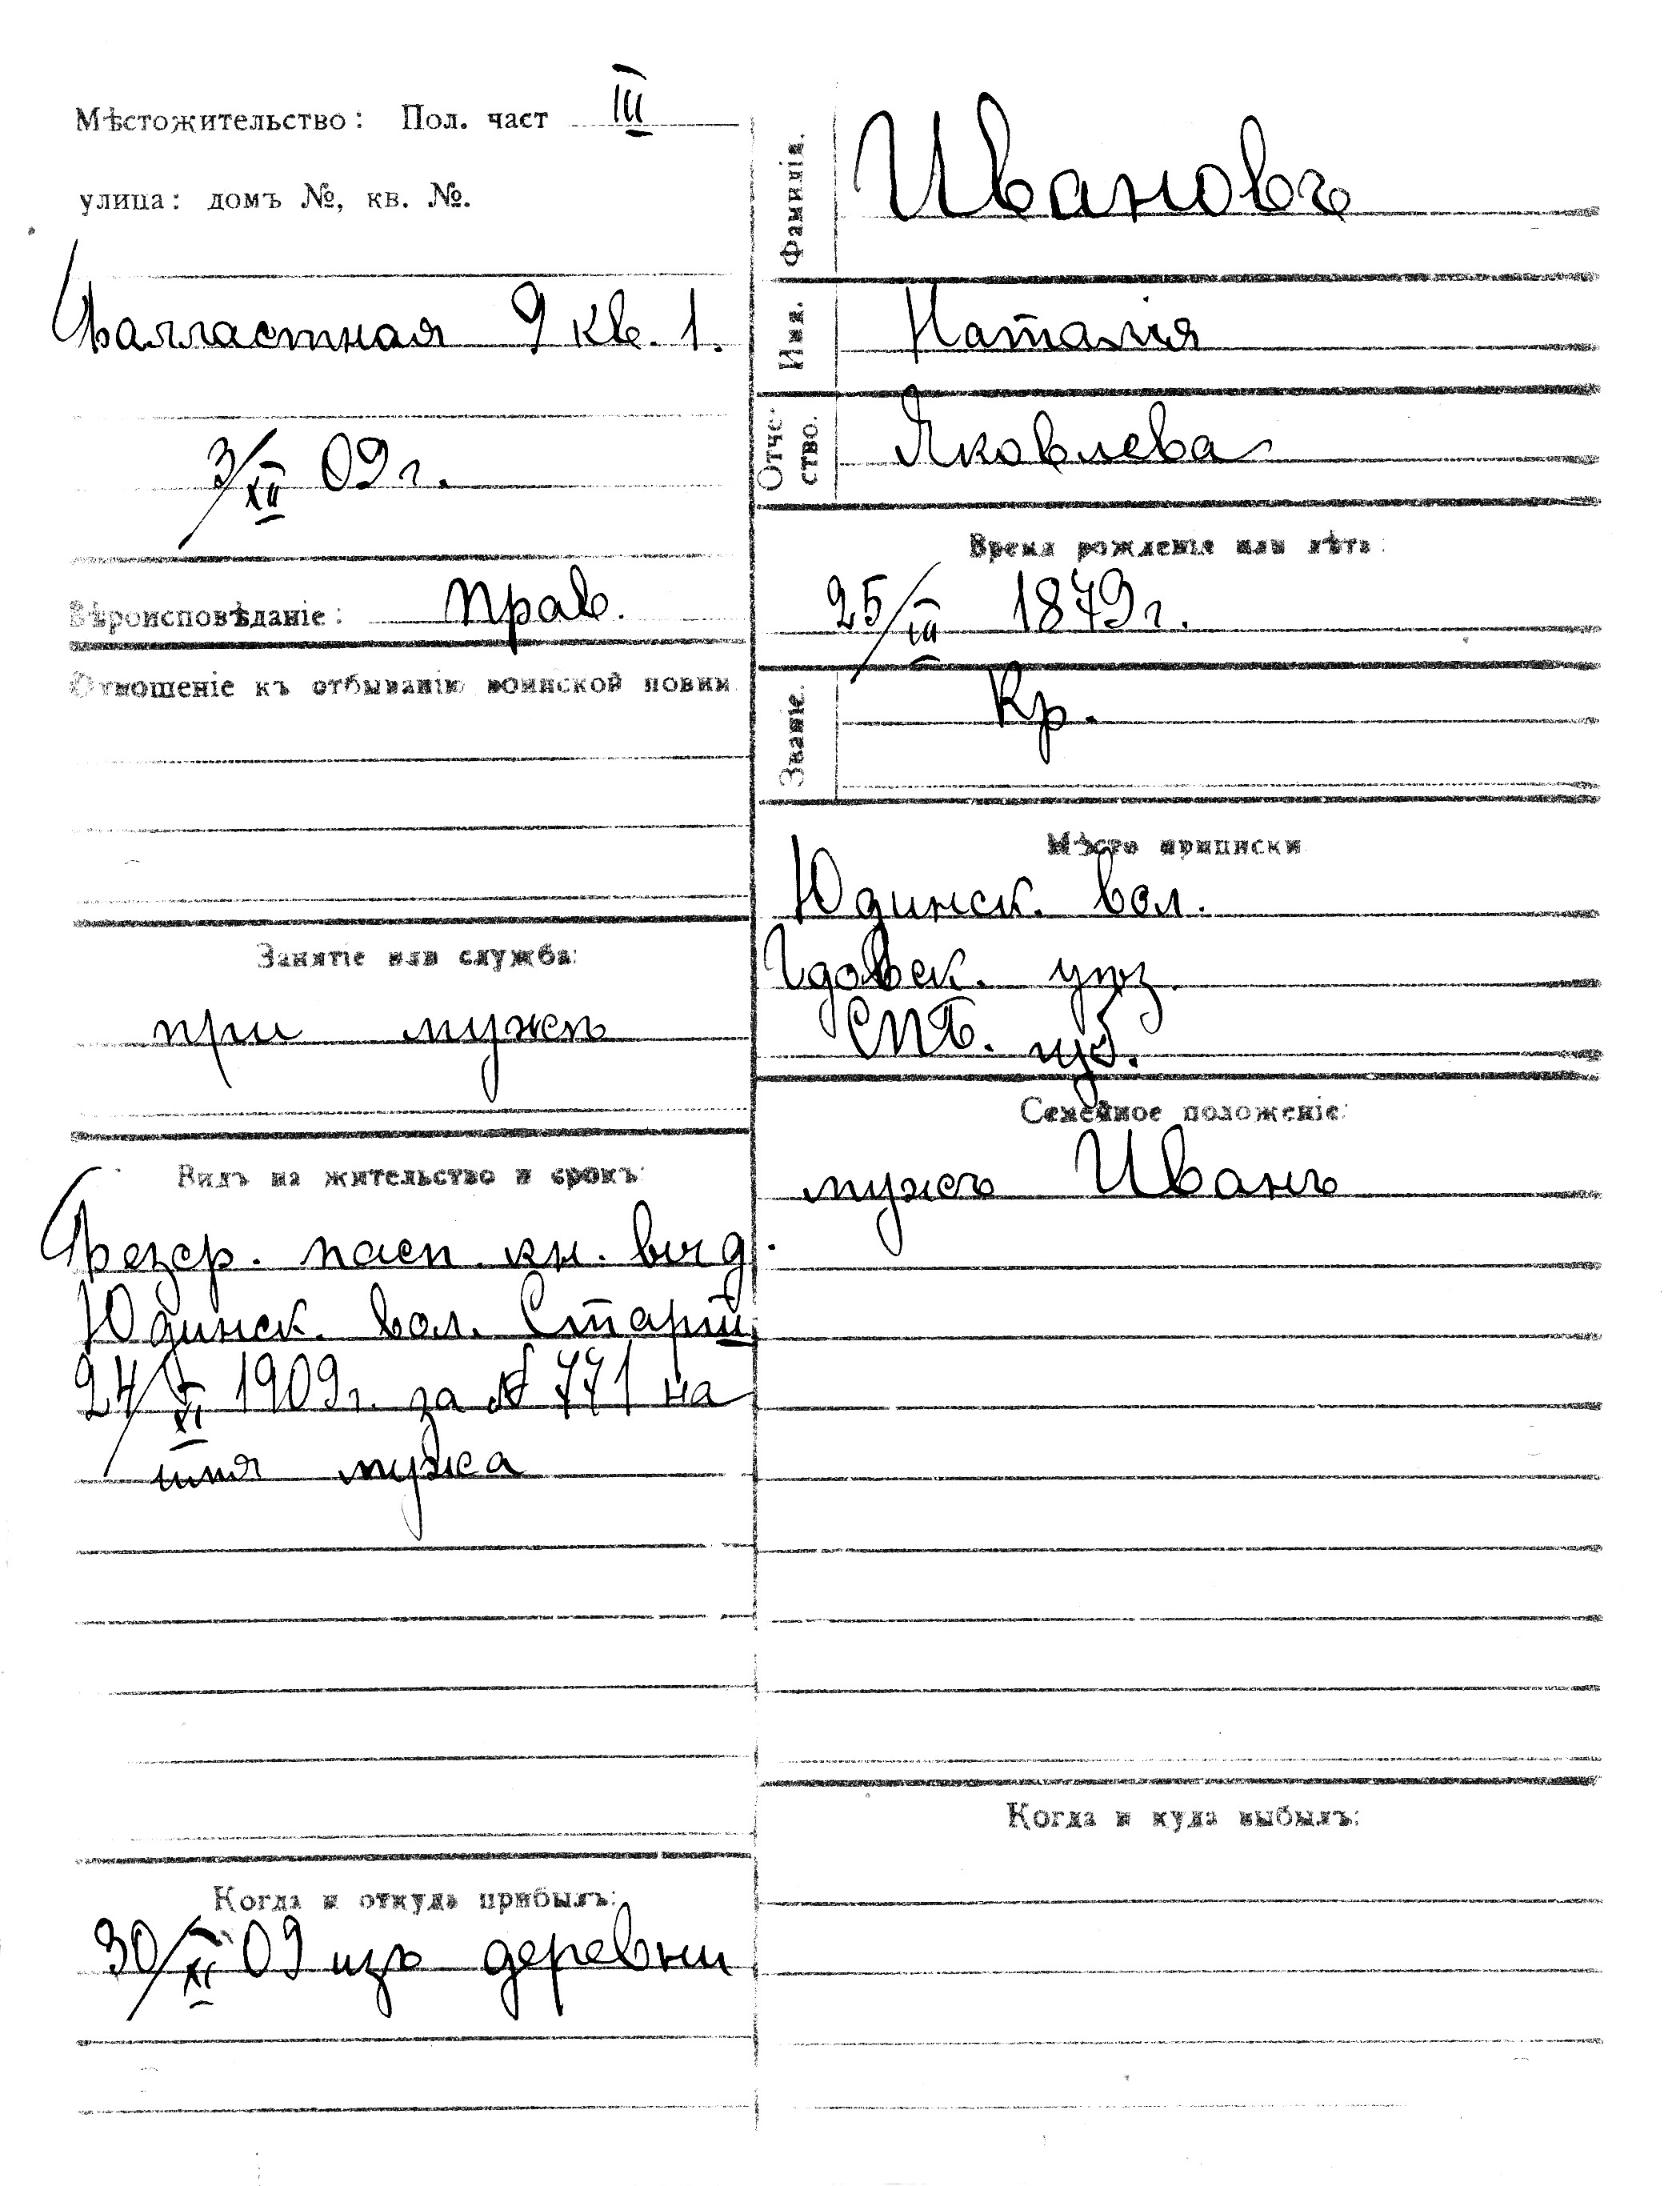 Мѣстожительство: Пол. част III
улица: домъ №, кв. №.
Балластная 9 кв. 1.
3/XII 09 г.
Вѣроисповѣданіе: прав.
Отношеніе къ отбыванію воинской повин.
Занятіе или служба:
при мужѣ
Видъ на жительство и срокъ:
Безср. пасп. кн. выд.
Юдинск. вол. Старш.
24/XI 1909 г. за № 771 на
имя мужа
Когда и откуда прибылъ:
30/XI 09 изъ деревни
Фамилія. Ивановъ
Имя. Наталія
Отче-
ство. Яковлева
Время рожденія или лѣта:
25/III 1879 г.
Званіе. Кр.
Мѣсто приписки
Юдинск. вол.
Гдовск. уѣз.
СПБ. губ.
Семейное положеніе:
мужъ Иванъ
Когда и куда выбылъ: